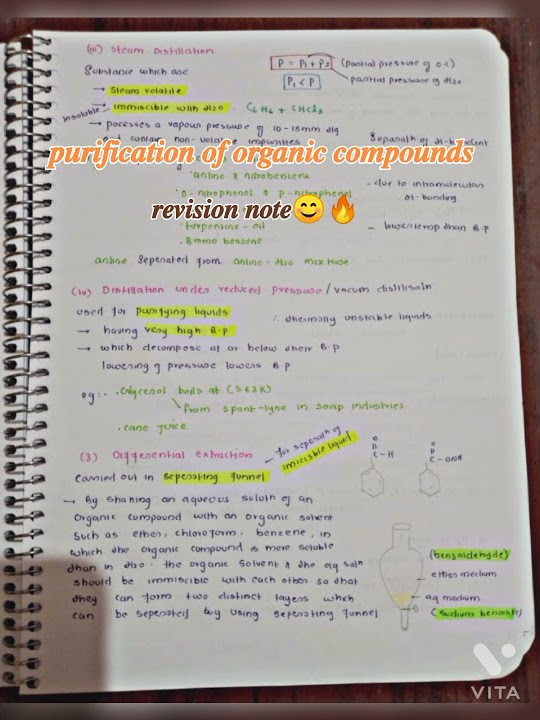 (iii) Steam Distillation
P = P1 + P2 (partial pressure of O.C)
Substance which are
partial pressure of H2O
→ Steam volatile
P1 < P
Insoluble
→ immiscible with H2O. C6H6 + CHCl3
→ pocesses a vapour pressure of 10-15mm Hg
non-volatile impurities
purification of organic compounds
aniline & nitrobenzene
O-nitrophenol & P-nitrophenol
- due to intramolecular
H-bonding
revision note😊🔥
Turpentine-oil
. Bromo benzene
aniline Seperated from aniline-H2O mixture
(iv) Distillation under reduced pressure/vacum distillsain
used for purifying liquids
∴ thermally unstable liquids
→ having very high B.P
→ which decompose at or below their B.P
lowering of pressure lowers B.P
eg:- . Glycerol boils at (563K)
from spent-lyne in soap industries
. cane juice
- for seperatn of
immicible liquid
(3) Differential extraction
Carried out in seperating funnel
C - H
→ By shaking an aqueous solutn of an
organic compound with an organic solvent
such as ether, chloroform, benzene, in
which the organic compound is more soluble
than in H2O. the organic solvent & the aq soln
should be immiscible with each other so that
they can form two distinct layers which
can be seperated by using seperating funnel
(benzaldehyde)
ether medium
aq medium
(sodium benzoate)
VITA